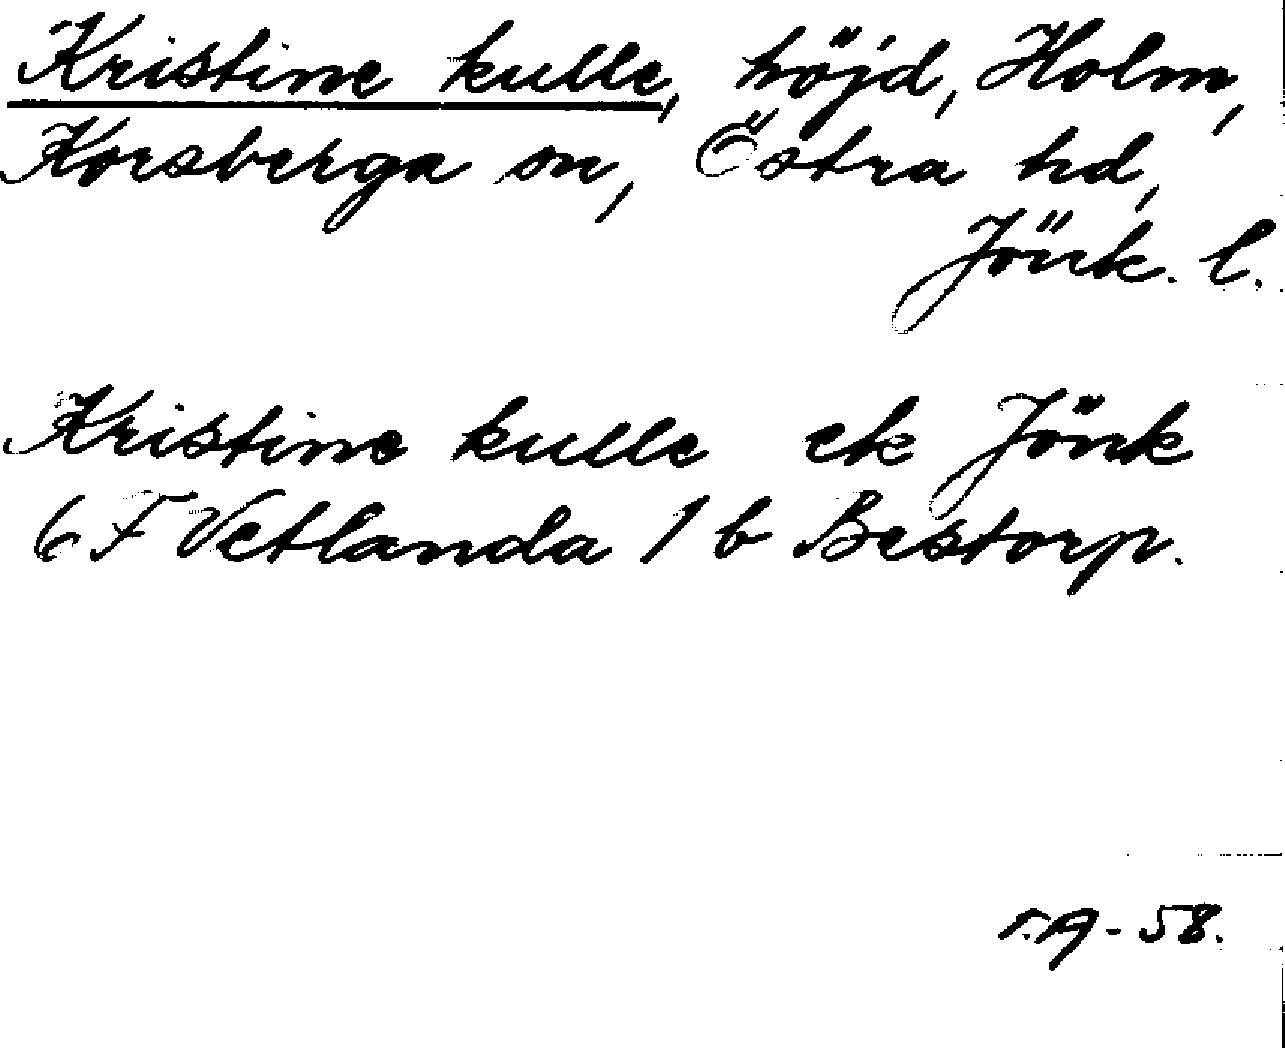 Kristine kulle, höjd, Holm,
Korsberga sn, Östra hd,
Jönk. l.
Kristine kulle ek Jönk
6 F Vetlanda 1 b Bestorp.
-58.